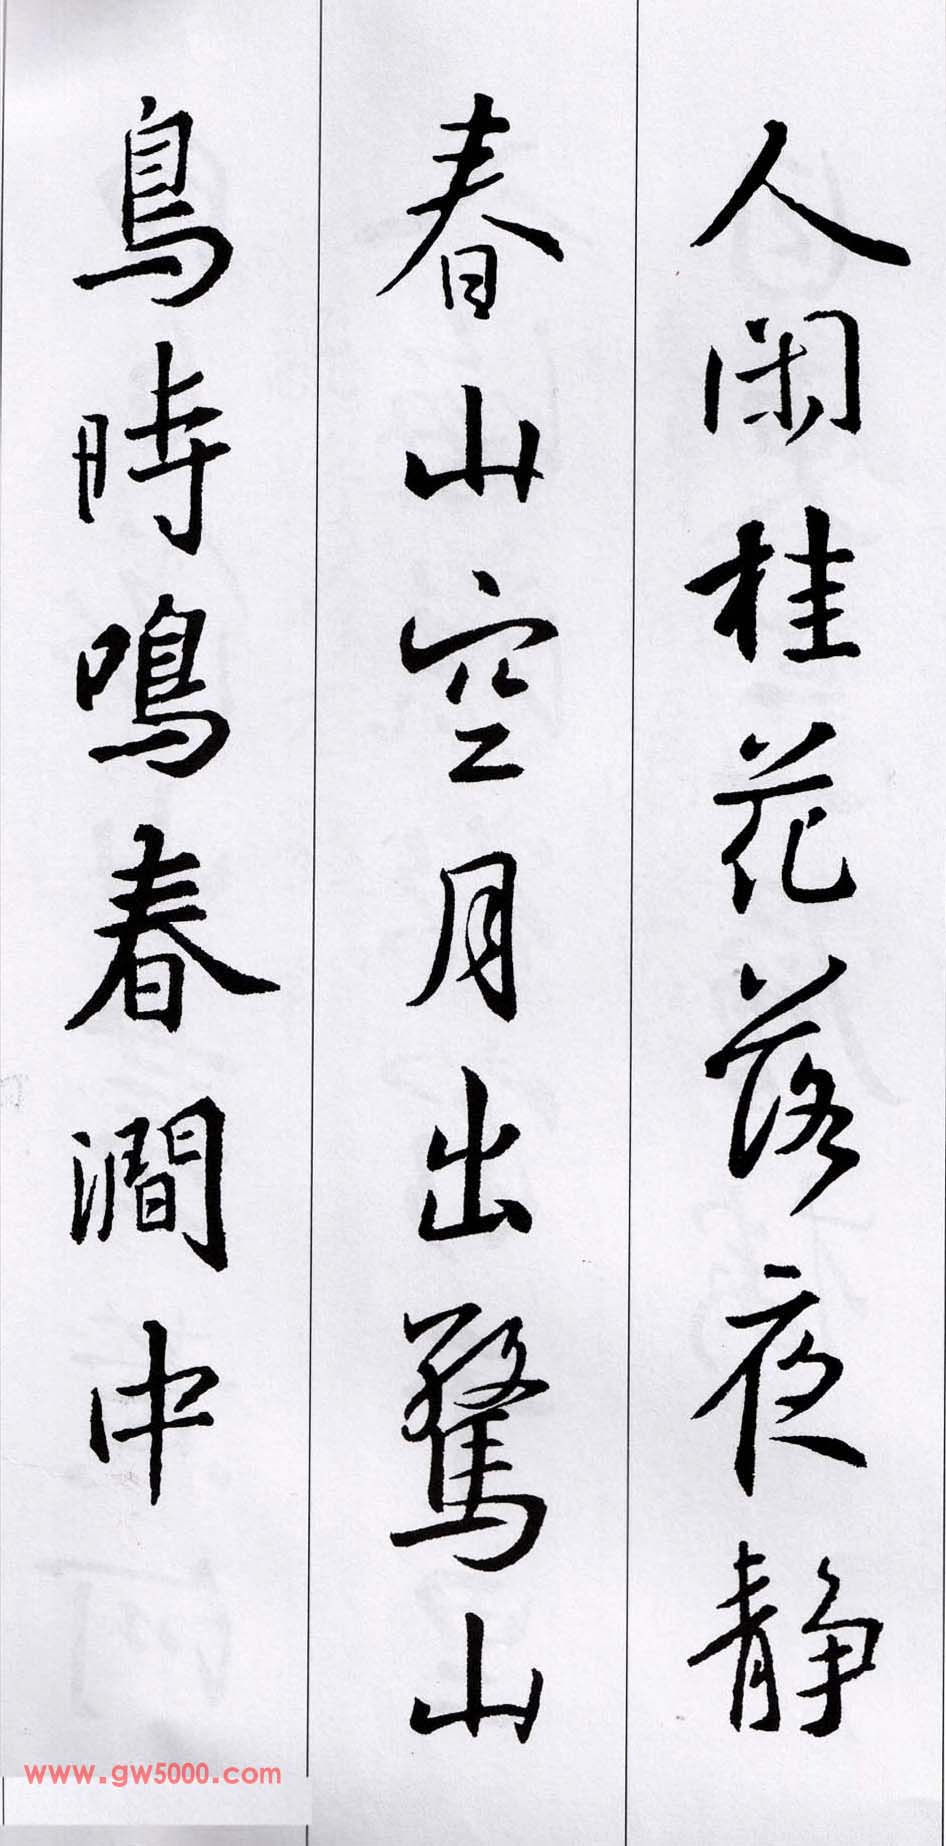 人闲桂花落夜静
春山空月出驚山
鳥時鳴春澗中
www.gw5000.com